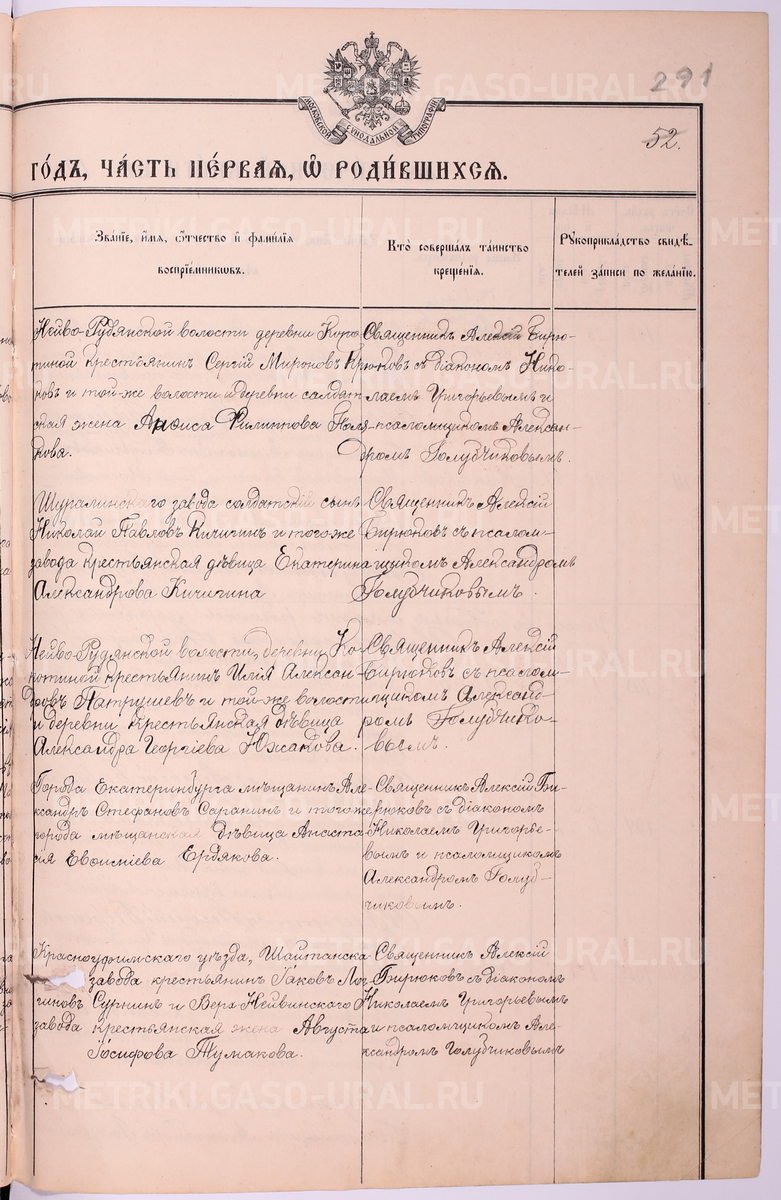 291
52.
МОСКОВСКОЙ СѴНОДАЛЬНОЙ ТИПОГРАФІИ
ГО́ДЪ, ЧА́СТЬ ПЕ́РВАЯ, Ѽ РОДИ́ВШИХСЯ.
Зва́нїе, и́мя, ѻ҆́тчество и҆ фами́лїя
воспрїе́мниковъ.
Кто̀ соверша́лъ та́инство
креще́нїя.
Рꙋкоприкла́дство свидѣ́-
телей за́писи по жела́нїю.
Нейво-Рудянской волости деревни Ко
тиной крестьянинъ Сергій Мироновъ Крю
ковъ и той-же волости и деревни солдат
ская жена Анѳиса Филиппова Поля-
кова.
Священникъ Алексій Бирю-
ковъ съ діакономъ Нико-
лаемъ Григорьевымъ и
псаломщикомъ Алексан-
дромъ Голубчиковымъ.
Шуралинскаго завода солдатскій сынъ
Николай Павловъ Кичигинъ и того же
завода крестьянская дѣвица Екатерина
Александрова Кичигина
Священникъ Алексій
Бирюковъ съ псалом-
щикомъ Александромъ
Голубчиковымъ.
Нейво-Рудянской волости, деревни Ко-
котиной крестьянинъ Илія Алексан
дровъ Патрушевъ и той-же волости
и деревни крестьянская дѣвица
Александра Георгіева Южакова.
Священникъ Алексій
Бирюковъ съ псалом-
щикомъ Александ-
ромъ Голубчико-
вымъ.
Города Екатеринбурга мѣщанинъ Але-
ксандръ Стефановъ Саранинъ и того же
города мѣщанская дѣвица Анаста
сія Евѳиміева Ердякова.
Священникъ Алексій Би-
рюковъ съ діакономъ
Николаемъ Григорье-
вымъ и псаломщикомъ
Александромъ Голуб-
чиковымъ.
Красноуфимскаго уѣзда, Шайтанска
завода крестьянинъ Іаковъ Лог
гиновъ Сурнинъ и Верх-Нейвинскаго
завода крестьянская жена Августа
Іосифова Тумакова.
Священникъ Алексій
Бирюковъ съ діакономъ
Николаемъ Григорьевымъ
и псаломщикомъ Але-
ксандромъ Голубчиковымъ
METRIKI.GASO-URAL.RU